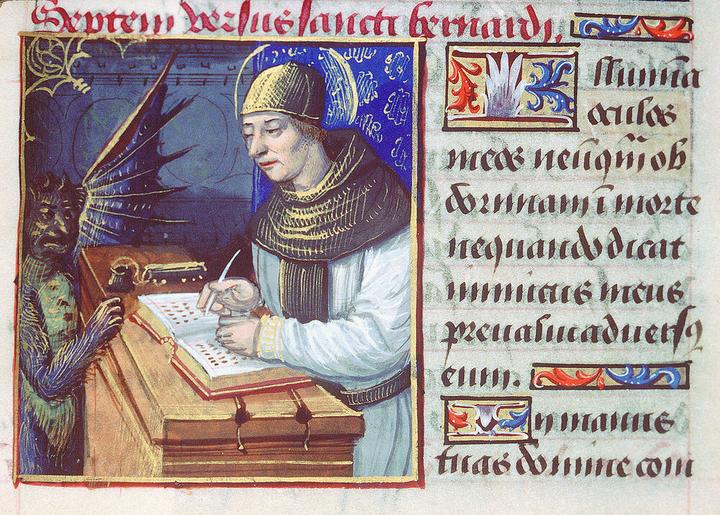 Septem versus sancti bernardi.
Illumina
oculos
meos neūq̄m ob
dormiam ī morte
nequando dicat
inimicus meus
preualui aduersꝰ
eum.
In manus
tuas domine com